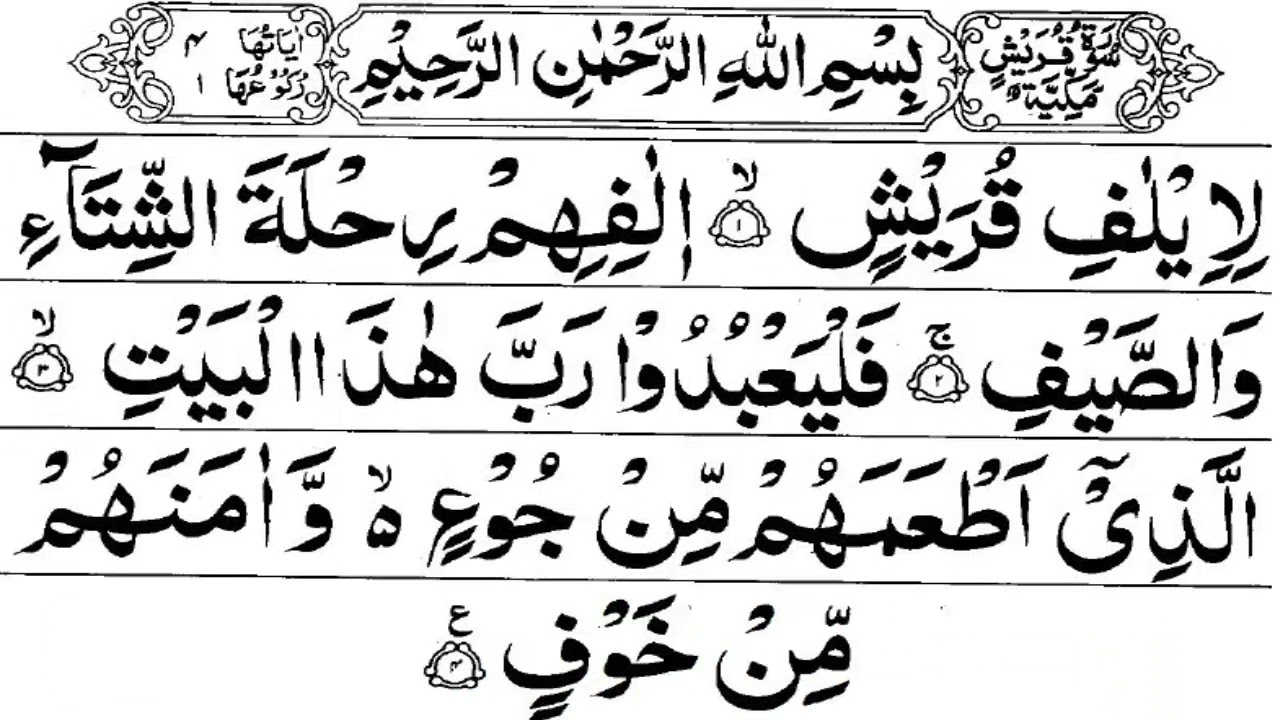 سُوْرَةُ قُرَيْشٍ مَكِّيَّةٌ
بِسْمِ اللّٰهِ الرَّحْمٰنِ الرَّحِيْمِ
اٰيَاتُهَا ۴
رُكُوْعُهَا ۱
لِاِيْلٰفِ قُرَيْشٍ ۙ‏﴿۱﴾ اٖلٰفِهِمْ رِحْلَةَ الشِّتَآءِ
وَالصَّيْفِ ۚ‏﴿۲﴾ فَلْيَعْبُدُوْا رَبَّ هٰذَا الْبَيْتِ ۙ‏﴿۳﴾
الَّذِىْٓ اَطْعَمَهُمْ مِّنْ جُوْعٍ ۙ۵ وَّاٰمَنَهُمْ
مِّنْ خَوْفٍ ﴿۴﴾ ع